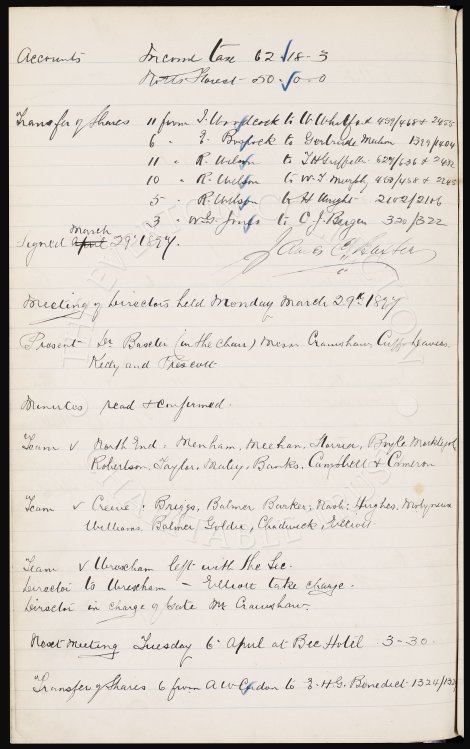 Accounts Income tax 62 18-3
Notts Forest - 20-0-0
Transfer of Shares 11 from J. Woodcock to W. 459/468 + 2455
6 " E. Bostock to Gertrude 1399/1404
11 " R. Wilson to 629/636 + 2432
10 " R. Wilson to W. J. Murphy
5 " R. Wilson to H Wright 2102/2106
3 " W.G. Jones to C. J. Berger 320/322
March
Signed April 29th 1897. James C. Baxter
Meeting of Directors held Monday March 29th 1897
Present Dr Baxter (in the chair) Messrs Crawshaw, Cuff, Davies
Kelly and Prescott
Minutes read & confirmed.
Team v North End. Menham, Meehan, Storrier, Boyle
Robertson, Taylor, Maley, Banks, Campbell & Cameron
Team v Crewe: Briggs, Balmer Barker, Nash, Hughes, Molyneux
Williams, Balmer, Goldie, Chadwick, Elliott
Team v Wrexham left with the Sec.
Director to Wrexham - Elliott take charge.
Director in charge of Gate Mr Crawshaw.
Next Meeting Tuesday 6th April at Bee Hotel 3-30
Transfer of Shares 6 from A W to E. H. G. Benedict